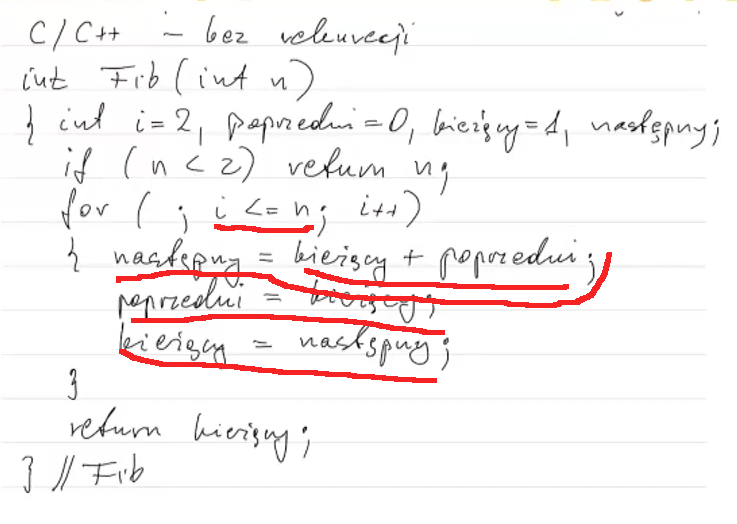 C/C++ – bez rekurencji
int Fib(int n)
{ int i=2, poprzedni=0, bieżący=1, następny;
if (n < 2) return n;
for ( ; i <= n; i++)
{ następny = bieżący + poprzedni;
poprzedni = bieżący;
bieżący = następny;
}
return bieżący;
} // Fib